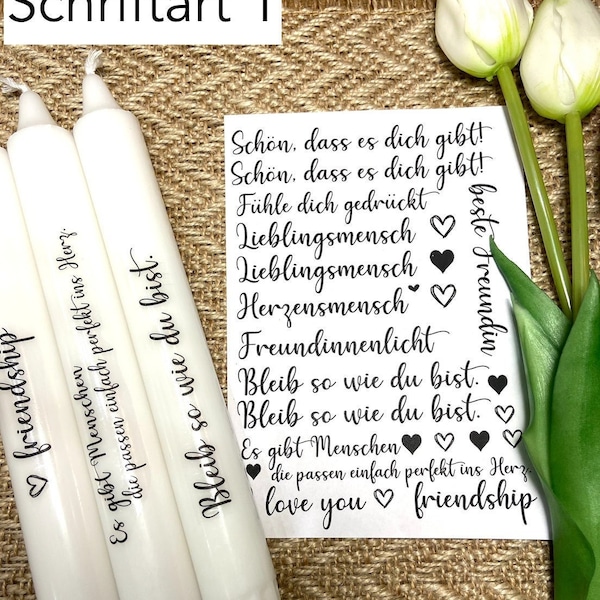 Schriftart 1
Schön, dass es dich gibt!
Schön, dass es dich gibt!
Fühle dich gedrückt
Lieblingsmensch
Lieblingsmensch
Herzensmensch
Freundinnenlicht
Bleib so wie du bist.
Bleib so wie du bist.
Es gibt Menschen
die passen einfach perfekt ins Herz.
love you
friendship
beste Freundin
friendship
Es gibt Menschen
die passen einfach perfekt ins Herz.
Bleib so wie du bist.